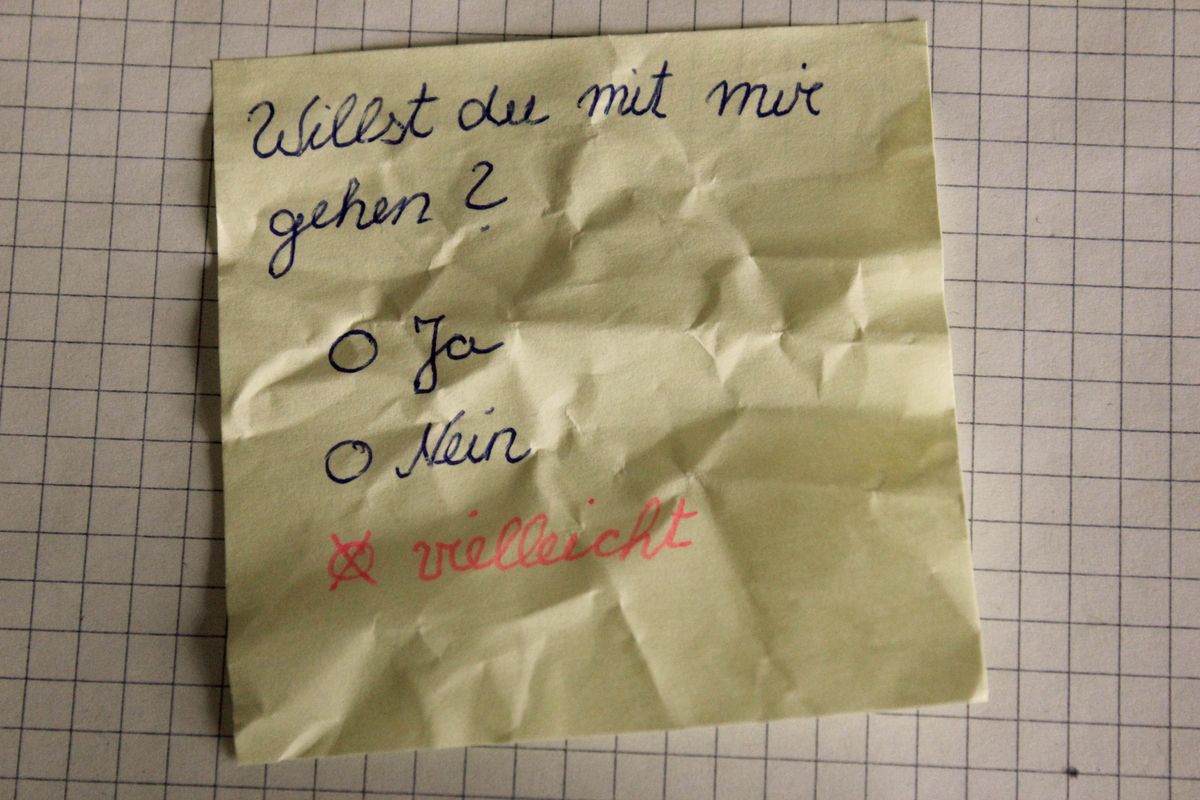 Willst du mit mir
gehen?
Ja
Nein
vielleicht